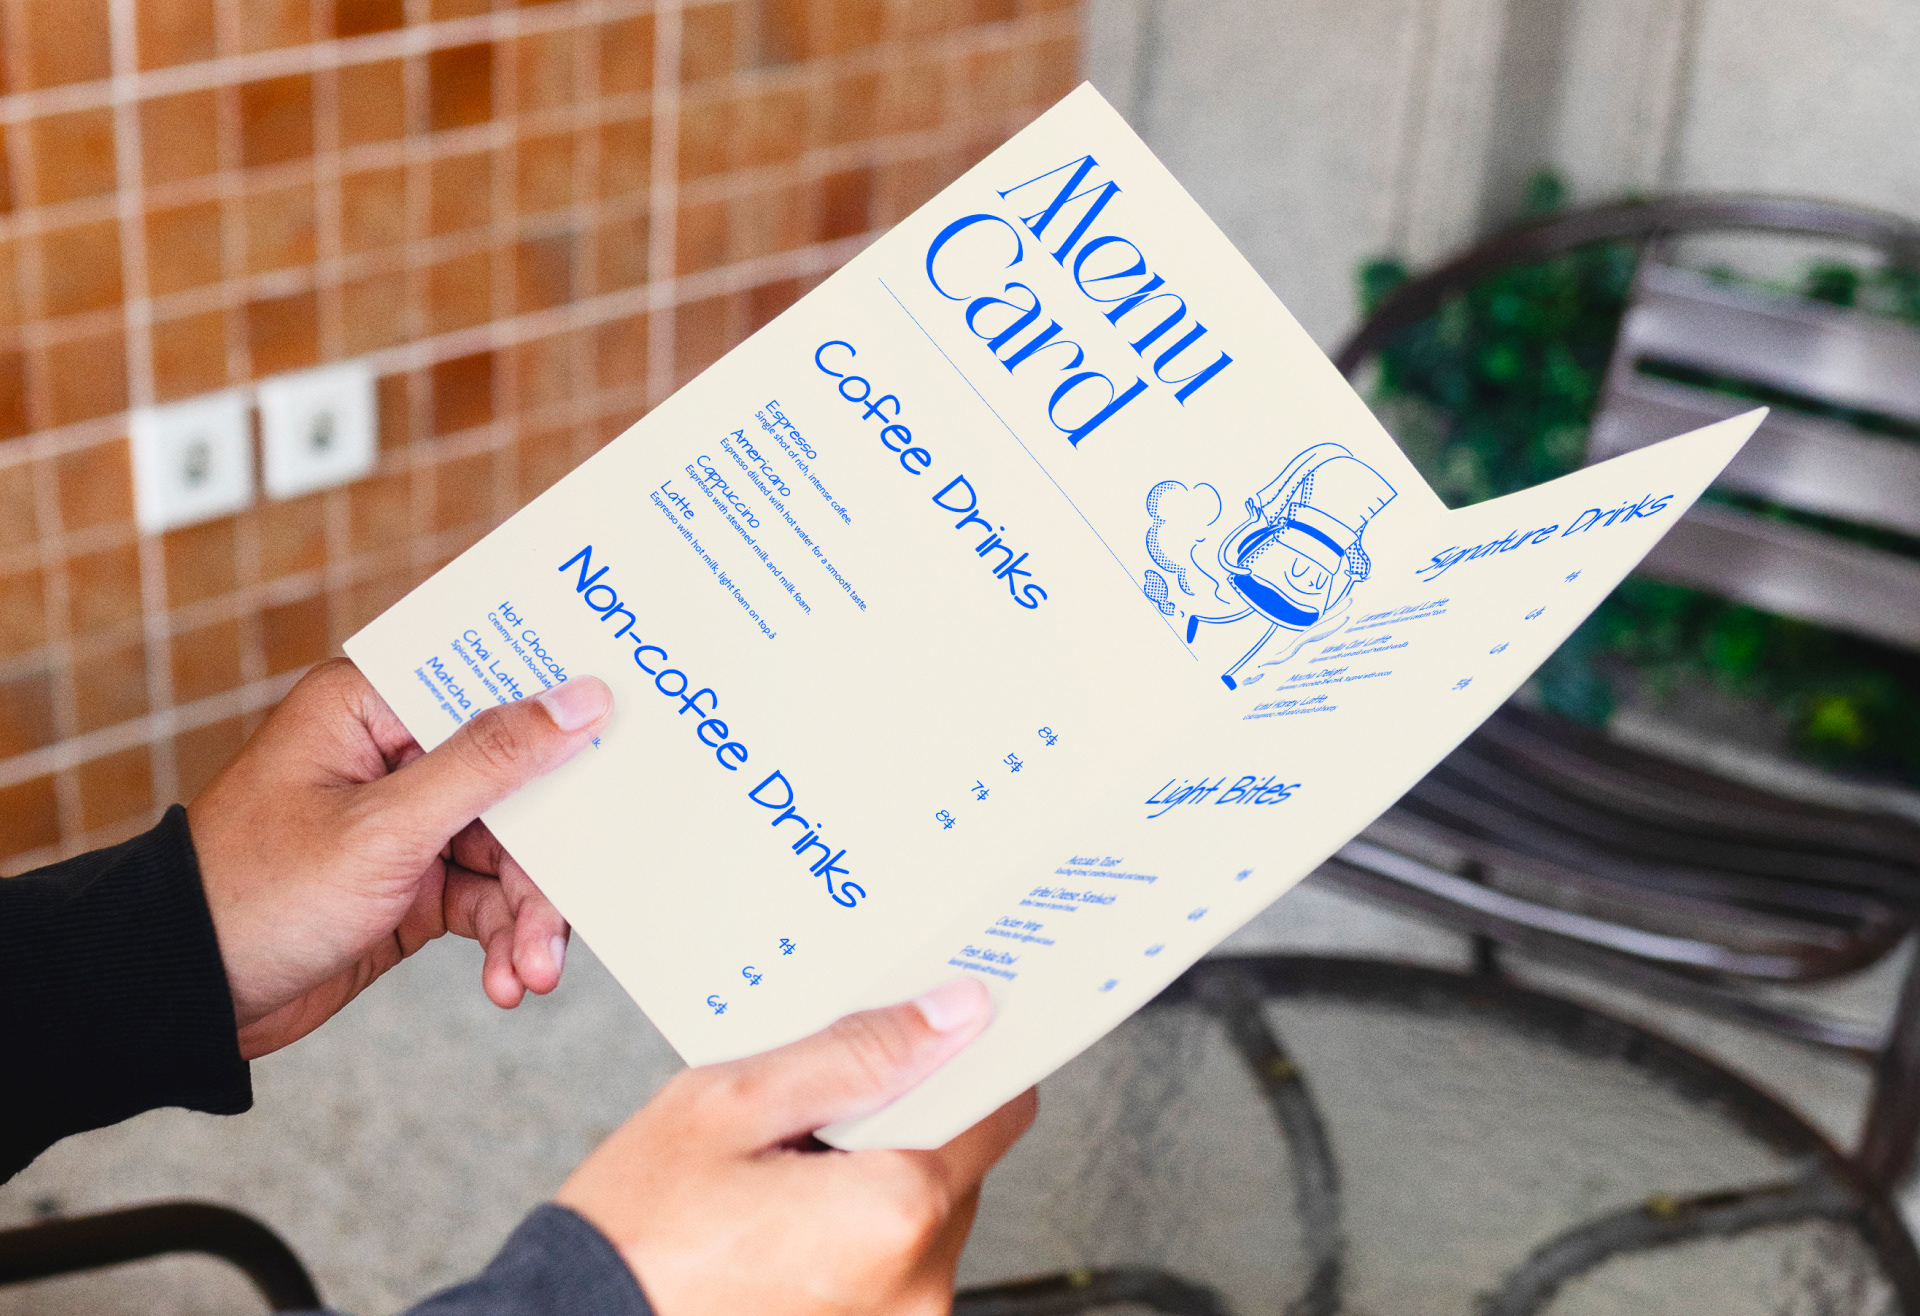 Menu
Card
Cofee Drinks
Espresso
Single shot of rich, intense coffee.
8$
Americano
Espresso diluted with hot water for a smooth taste.
5$
Cappuccino
Espresso with steamed milk and milk foam.
7$
Latte
Espresso with hot milk, light foam on top.á
8$
Non-cofee Drinks
Hot Chocola
Creamy hot chocolate
4$
Chai Latte
Spiced tea with ste
6$
Matcha L
Japanese green
lk.
6$
Signature Drinks
Caramel Cloud Latte
Vanilla Oat Latte
6$
Mocha Delight
6$
Iced Honey Latte
5$
Light Bites
Avocado Toast
Grilled Cheese Sandwich
Chicken Wrap
Fresh Salad Bowl